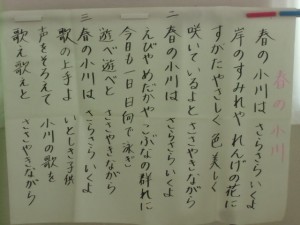 春の小川
春の小川は さらさらいくよ
岸のすみれや れんげの花に
すがたやさしく 色美しく
咲いているよと ささやきながら
二 春の小川は さらさらいくよ
えびやめだかや こぶなの群れに
今日も一日 日向で泳ぎ
遊べ遊べと ささやきながら
三 春の小川は さらさらいくよ
歌の上手よ いとしき子供
声をそろえて 小川の歌を
歌え歌えと ささやきながら